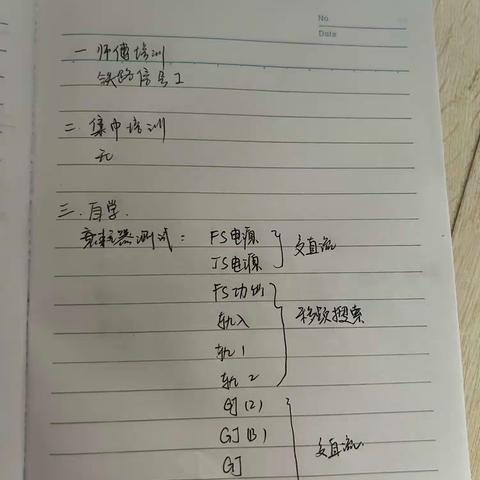 No
Date
一 师傅培训
铁路信号工
二. 集中培训
无
三. 自学.
衰耗器测试: FS电源
JS电源
交直流
FS功出
轨入
移频搜索
轨1
轨2
GJ(Z)
GJ(B)
交直流
GJ